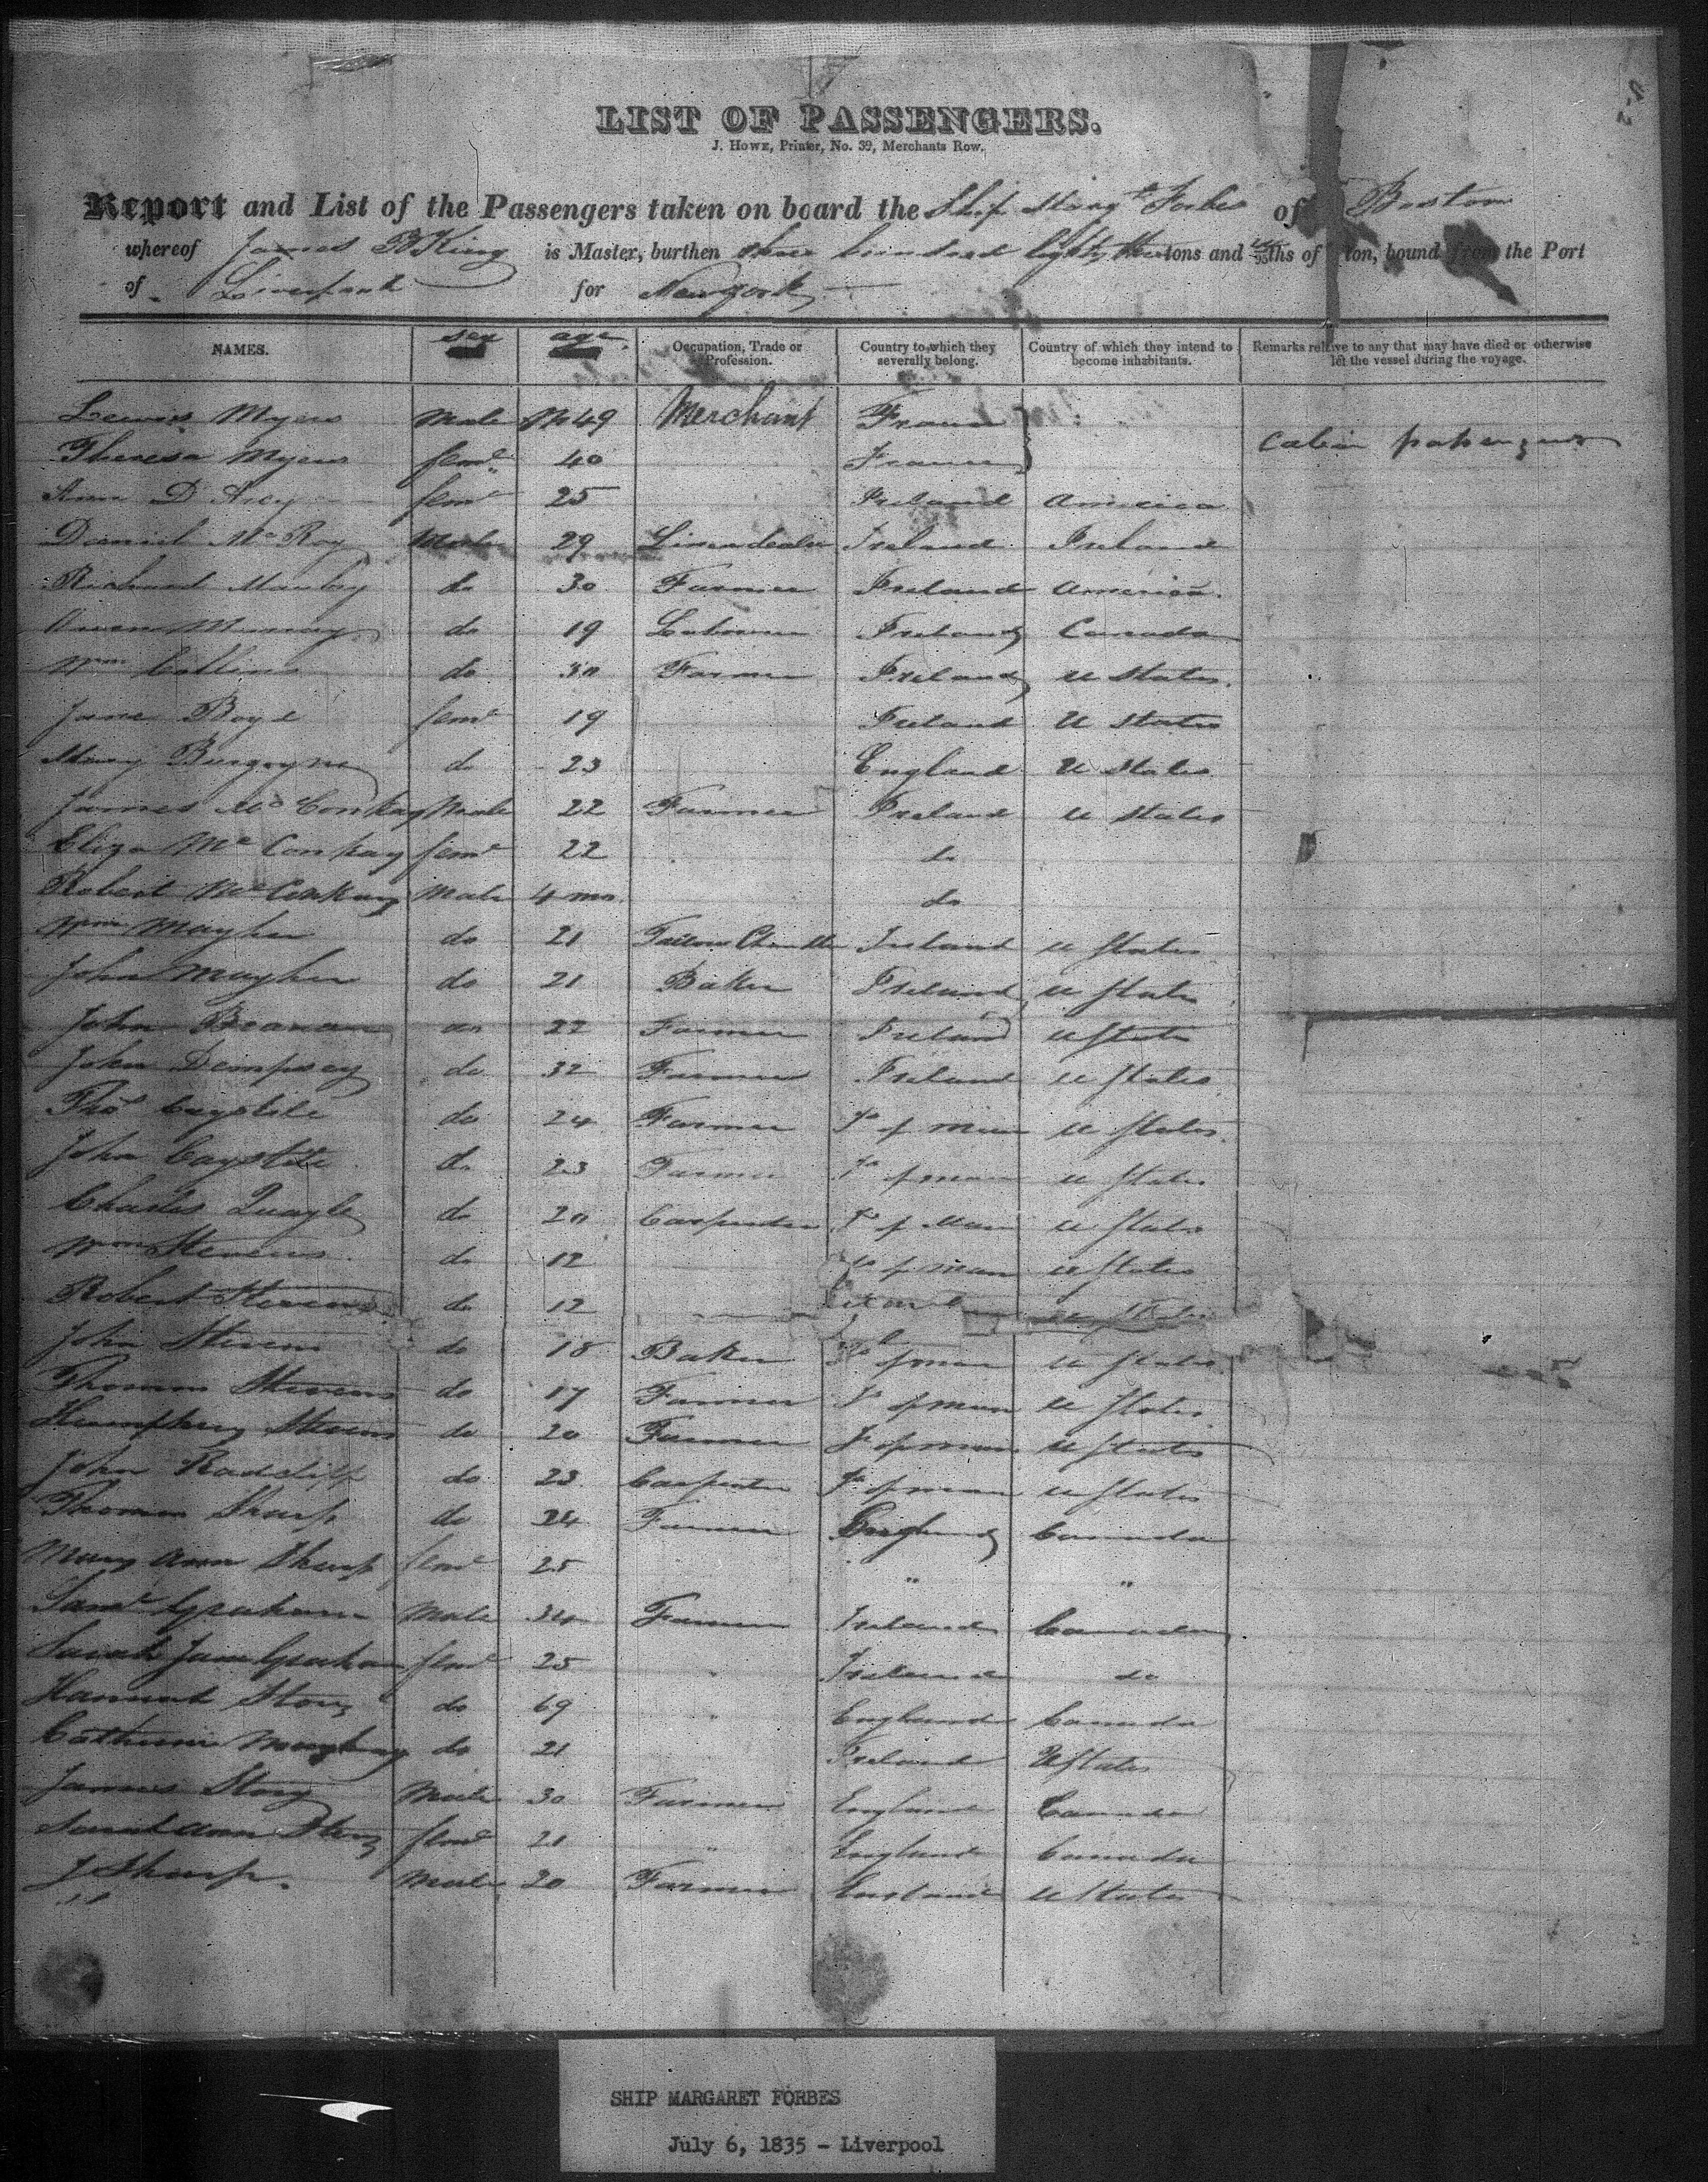 LIST OF PASSENGERS.
J. Howe, Printer, No. 39, Merchants Row.
Report and List of the Passengers taken on board the Ship Margt Forbes of Boston
whereof James King is Master, burthen three hundred Eighty tons and ths of ton, bound from the Port
of Liverpool for New York
NAMES. sex age. Occupation, Trade or Profession. Country to which they severally belong. Country of which they intend to become inhabitants. Remarks relative to any that may have died or otherwise let the vessel during the voyage.
Lewis Myers Male 49 Merchant France
Cabin passengers
Theresa Myers feml 40 France
Ann D feml 25 Ireland America
Daniel McRoy Male 29 Linendealer Ireland Ireland
Richard do 30 Farmer Ireland America
Owen Murray do 19 Labourer Ireland Canada
Wm Collins do 30 Farmer Ireland U States.
Jane Boyd feml 19 Ireland U States
Mary Burgoyne do 23 England U States
James McConkay Male 22 Farmer Ireland U States
Eliza McConkay feml 22 do
Robert McConkay Male 4 mo. do
Wm Mayher do 21 Ireland U States
John Mayher do 21 Baker Ireland U States
John do 22 Farmer Ireland U States
John Dempsey do 32 Farmer Ireland U States
Thos do 24 Farmer Is of Man U States.
John do 23 Farmer Is of man U States
Charles Quayle do 20 Carpenter Is of Man U States
Wm Stevens do 12 Is of man U States
Robert Stevens do 12 U States
John Stevens do 18 Baker Is of man U States
Thomas Stevens do 17 Farmer Is of man U States
Humphrey Stevens do 20 Farmer Is of man U States
John Radcliff do 23 Carpenter Is of man U States
Thomas Sharp do 24 Farmer England Canada
Mary Ann Sharp feml 25 " "
Saml Graham Male 34 Farmer Ireland Canada
Sarah Jane Graham feml 25 " Ireland do
Hannah Story do 69 " England Canada
Catherine do 21 Ireland U States
James Story Male 30 Farmer England Canada
Sarah Ann Story feml 21 " England Canada
J Sharp. Male 20 Farmer England U States
SHIP MARGARET FORBES
July 6, 1835 - Liverpool